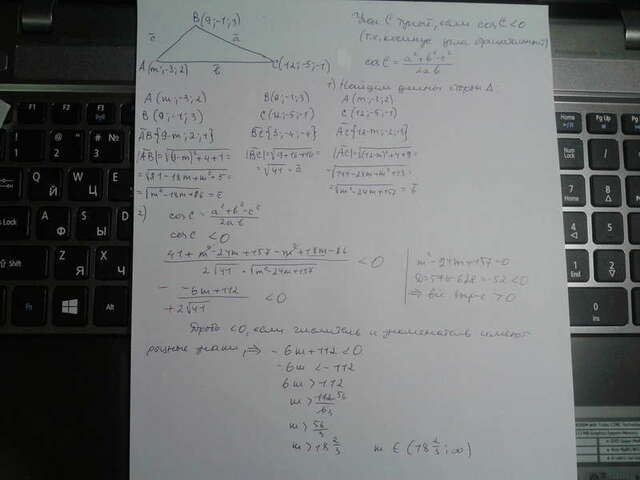 B(9;-1;3)
c̄
ā
A(m;-3;2)
b̄
C(12;-5;-1)
Угол C тупой, если cos C < 0
(т.к. косинус угла отрицательный)
cos C = (a² + b² - c²) / 2ab
1) Найдём длины сторон Δ:
A(m;-3;2)
B(9;-1;3)
A(m;-3;2)
B(9;-1;3)
C(12;-5;-1)
C(12;-5;-1)
A̅B̅{9-m;2;1}
B̅C̅{3;-4;-4}
A̅C̅{12-m;-2;-3}
|A̅B̅| = √((9-m)² + 4 + 1) =
|B̅C̅| = √(9+16+16) =
|A̅C̅| = √((12-m)² + 4 + 9) =
= √(81 - 18m + m² + 5) =
= √41 = ā
= √(144 - 24m + m² + 13) =
= √(m² - 18m + 86) = c̄
= √(m² - 24m + 157) = b̄
2) cos C = (a² + b² - c²) / 2ab
cos C < 0
(41 + m² - 24m + 157 - m² + 18m - 86) / (2√41 · √(m² - 24m + 157)) < 0
m² - 24m + 157 = 0
D = 576 - 628 = -52 < 0
⇒ > 0
- (-6m + 112) / (+ 2√41) < 0
Дробь < 0, если числитель и знаменатель имеют
разные знаки, ⇒ - 6m + 112 < 0
-6m < -112
6m > 112
m > 112 56 / 6 3
m > 56/3
m > 18 2/3
m ∈ (18 2/3; ∞)